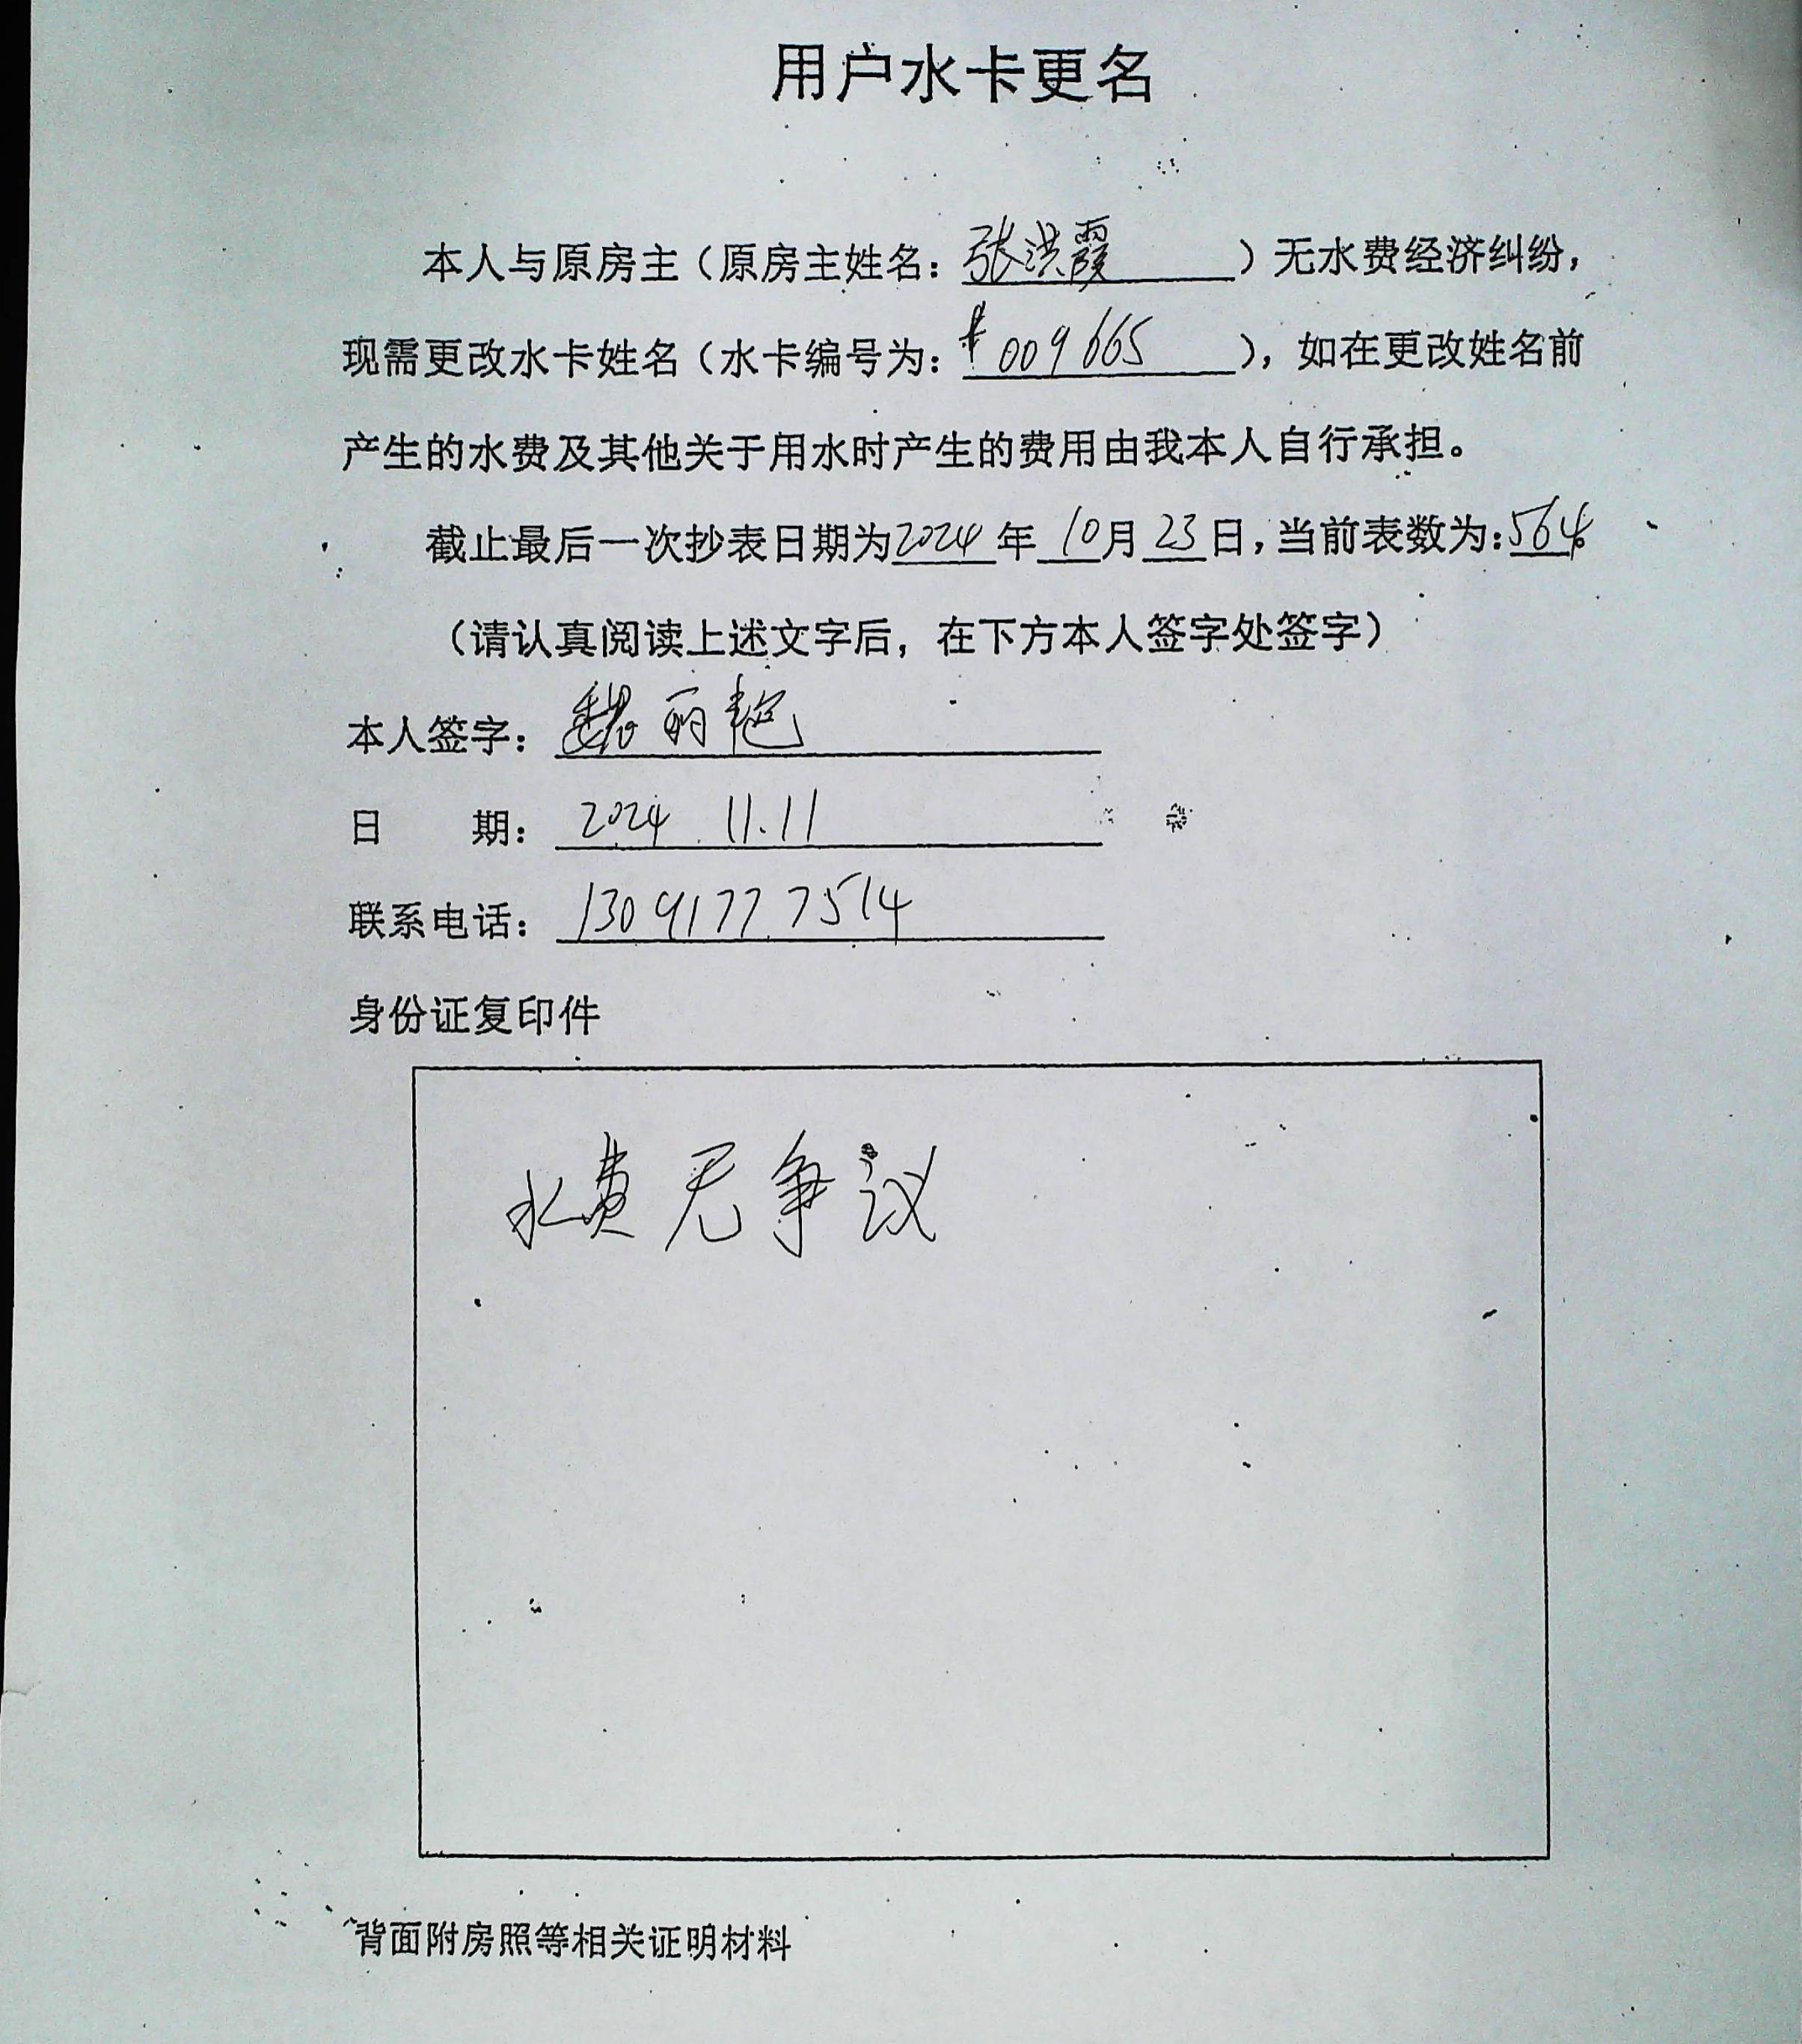 用户水卡更名
本人与原房主（原房主姓名：张洪霞）无水费经济纠纷，
现需更改水卡姓名（水卡编号为：009665），如在更改姓名前
产生的水费及其他关于用水时产生的费用由我本人自行承担。
截止最后一次抄表日期为2024年10月23日，当前表数为：564
（请认真阅读上述文字后，在下方本人签字处签字）
本人签字：魏丽艳
日 期：2024 11.11
联系电话：13091777514
身份证复印件
水费无争议
背面附房照等相关证明材料